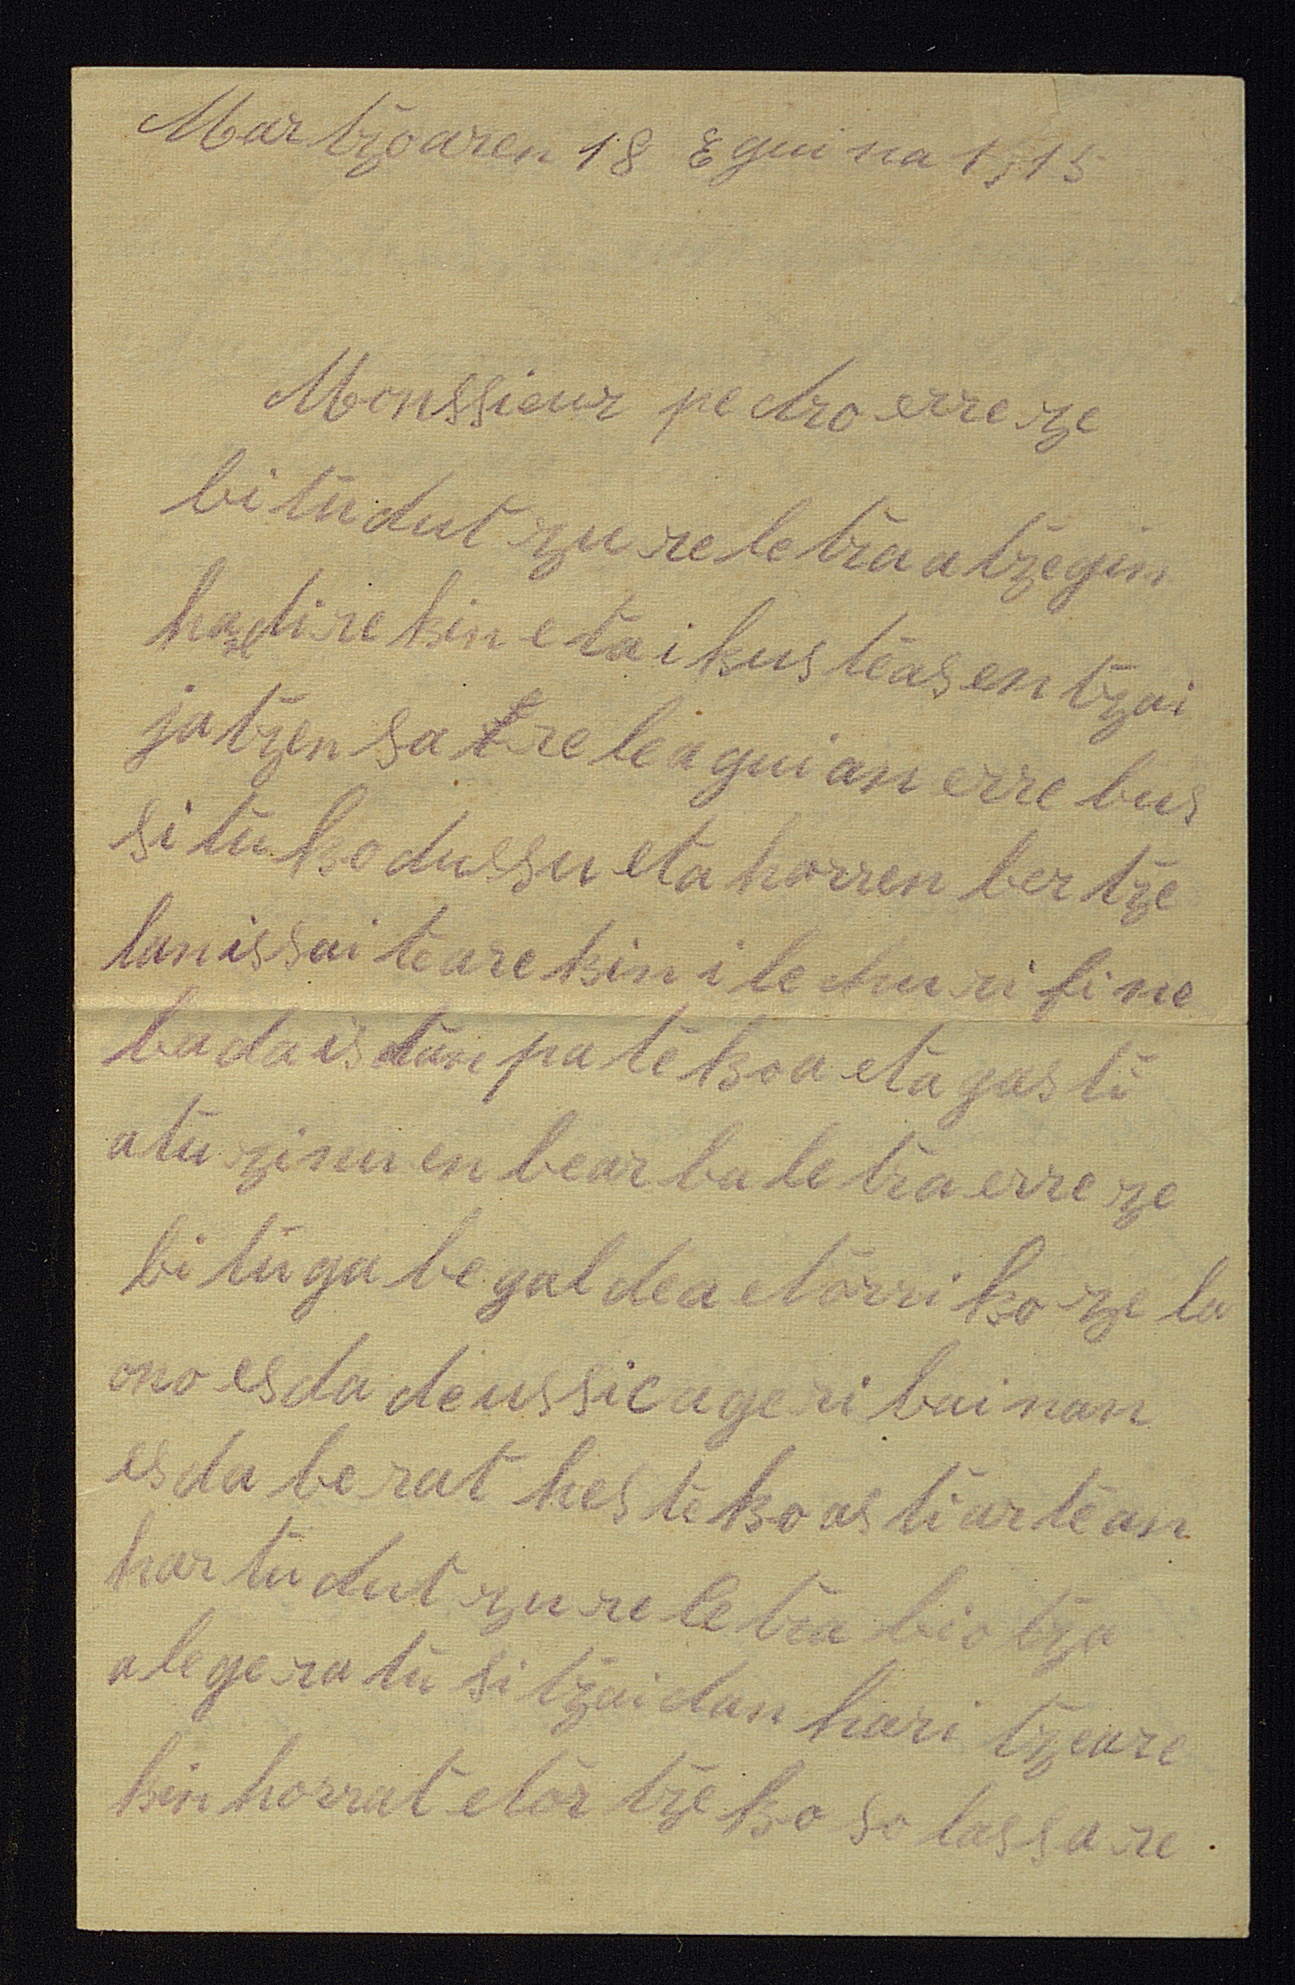 Martzoaren 18 Eguina 1915
Monssieur pedro erreze
bitu dut zure letra atzegin
handirekin eta ikusteas entzai
jatzen satre leaguian errebus
situko dussu eta horren bertze
lan issaitearekin ile churi fine
bada is tanpatekoa eta gastu
atu zinuen bear ba letra erreze
bitu gabe galdea etorriko zela
ono esda deussic ageri bainan
esda berat hesteko asti artean
hartu dut zure letra biotza
alegeratu sitzaidan haritzeare
kin horrat etortzeko solassare